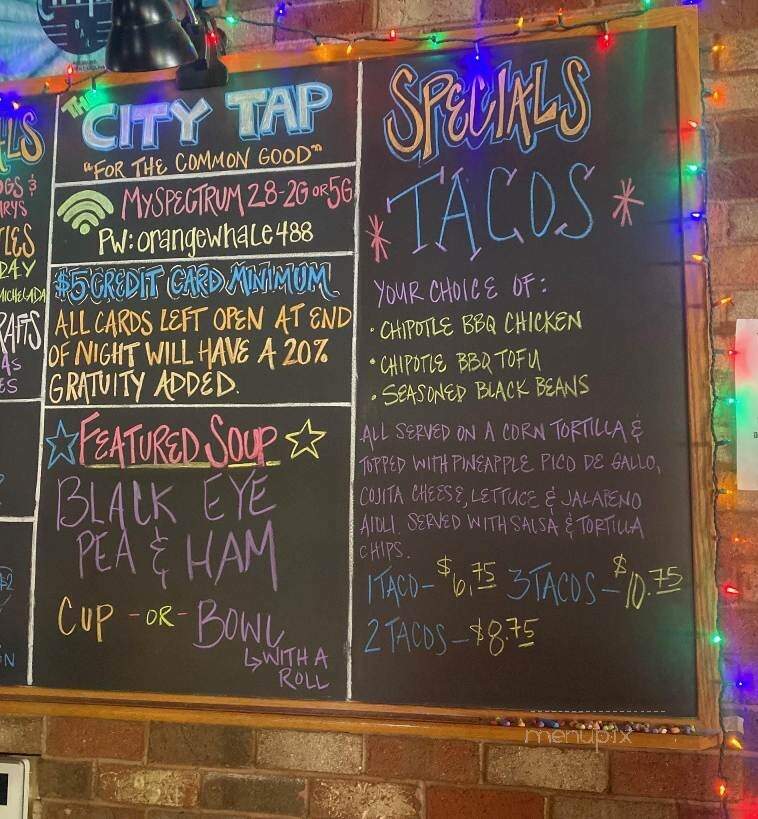 LS
THE
CITY TAP
"FOR THE COMMON GOOD"
MYSPECTRUM 28-2G OR 5G
PW: orangewhale488
$5 CREDIT CARD MINIMUM
ALL CARDS LEFT OPEN AT END
OF NIGHT WILL HAVE A 20%
GRATUITY ADDED.
FEATURED SOUP
BLACK EYE
PEA & HAM
CUP -OR- BOWL
WITH A
ROLL
SPECIALS
TACOS
YOUR CHOICE OF:
• CHIPOTLE BBQ CHICKEN
• CHIPOTLE BBQ TOFU
• SEASONED BLACK BEANS
ALL SERVED ON A CORN TORTILLA &
TOPPED WITH PINEAPPLE PICO DE GALLO,
COJITA CHEESE, LETTUCE & JALAPENO
AIOLI. SERVED WITH SALSA & TORTILLA
CHIPS.
1 TACO - $6.75 3 TACOS - $10.75
2 TACOS - $8.75
menupix